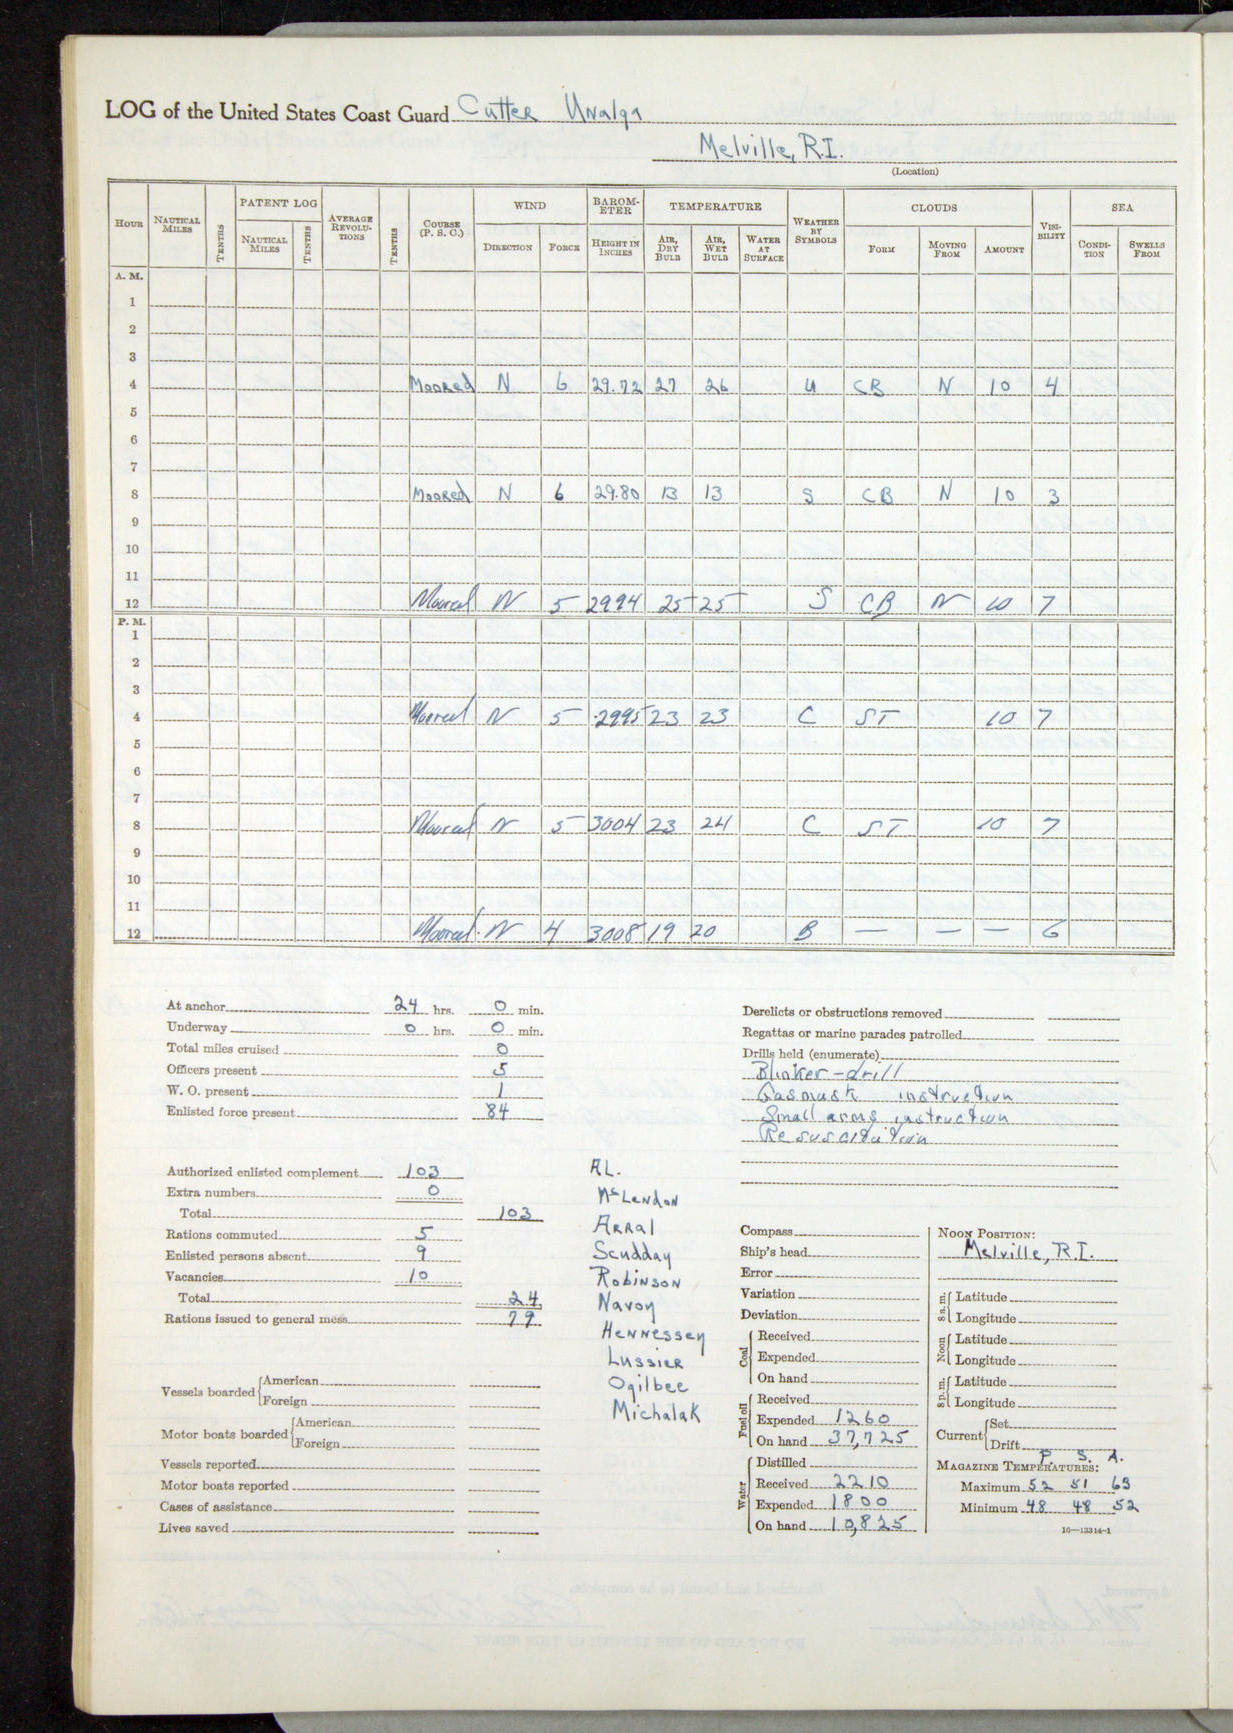 LOG of the United States Coast Guard Cutter Unalga
Melville, R.I.
(Location)
HOUR NAUTICAL MILES TENTHS PATENT LOG NAUTICAL MILES TENTHS AVERAGE REVOLUTIONS TENTHS COURSE (P. S. C.) WIND DIRECTION FORCE BAROMETER HEIGHT IN INCHES TEMPERATURE AIR, DRY BULB AIR, WET BULB WATER AT SURFACE WEATHER BY SYMBOLS CLOUDS FORM MOVING FROM AMOUNT VISIBILITY SEA CONDITION SWELLS FROM
A. M.
1
2
3
4 Moored N 6 29.72 27 26 U CB N 10 4
5
6
7
8 Moored N 6 29.80 13 13 S CB N 10 3
9
10
11
12 Moored N 5 2994 25 25 S CB N 10 7
P. M.
1
2
3
4 Moored N 5 2995 23 23 C ST 10 7
5
6
7
8 Moored N 5 3004 23 24 C ST 10 7
9
10
11
12 Moored N 4 3008 19 20 B — — — 6
At anchor 24 hrs. 0 min.
Underway 0 hrs. 0 min.
Total miles cruised 0
Officers present 5
W. O. present 1
Enlisted force present 84
Derelicts or obstructions removed
Regattas or marine parades patrolled
Drills held (enumerate)
Blinker-drill
Gasmask instruction
Small arms instruction
Resuscitation
Authorized enlisted complement 103
Extra numbers 0
Total 103
Rations commuted 5
Enlisted persons absent 9
Vacancies 10
Total 24
Rations issued to general mess 79
AL.
McLendon
Arral
Scudday
Robinson
Navoy
Hennessey
Lussier
Ogilbee
Michalak
Vessels boarded American
Foreign
Motor boats boarded American
Foreign
Vessels reported
Motor boats reported
Cases of assistance
Lives saved
Compass
Ship's head
Error
Variation
Deviation
Coal Received
Expended
On hand
Fuel oil Received
Expended 1260
On hand 37,725
Water Distilled
Received 2210
Expended 1800
On hand 10,825
NOON POSITION:
Melville, R.I.
8 a. m. Latitude
Longitude
Noon Latitude
Longitude
8 p. m. Latitude
Longitude
Current Set
Drift
P. S. A.
MAGAZINE TEMPERATURES:
Maximum 52 51 63
Minimum 48 48 52
16—13314-1